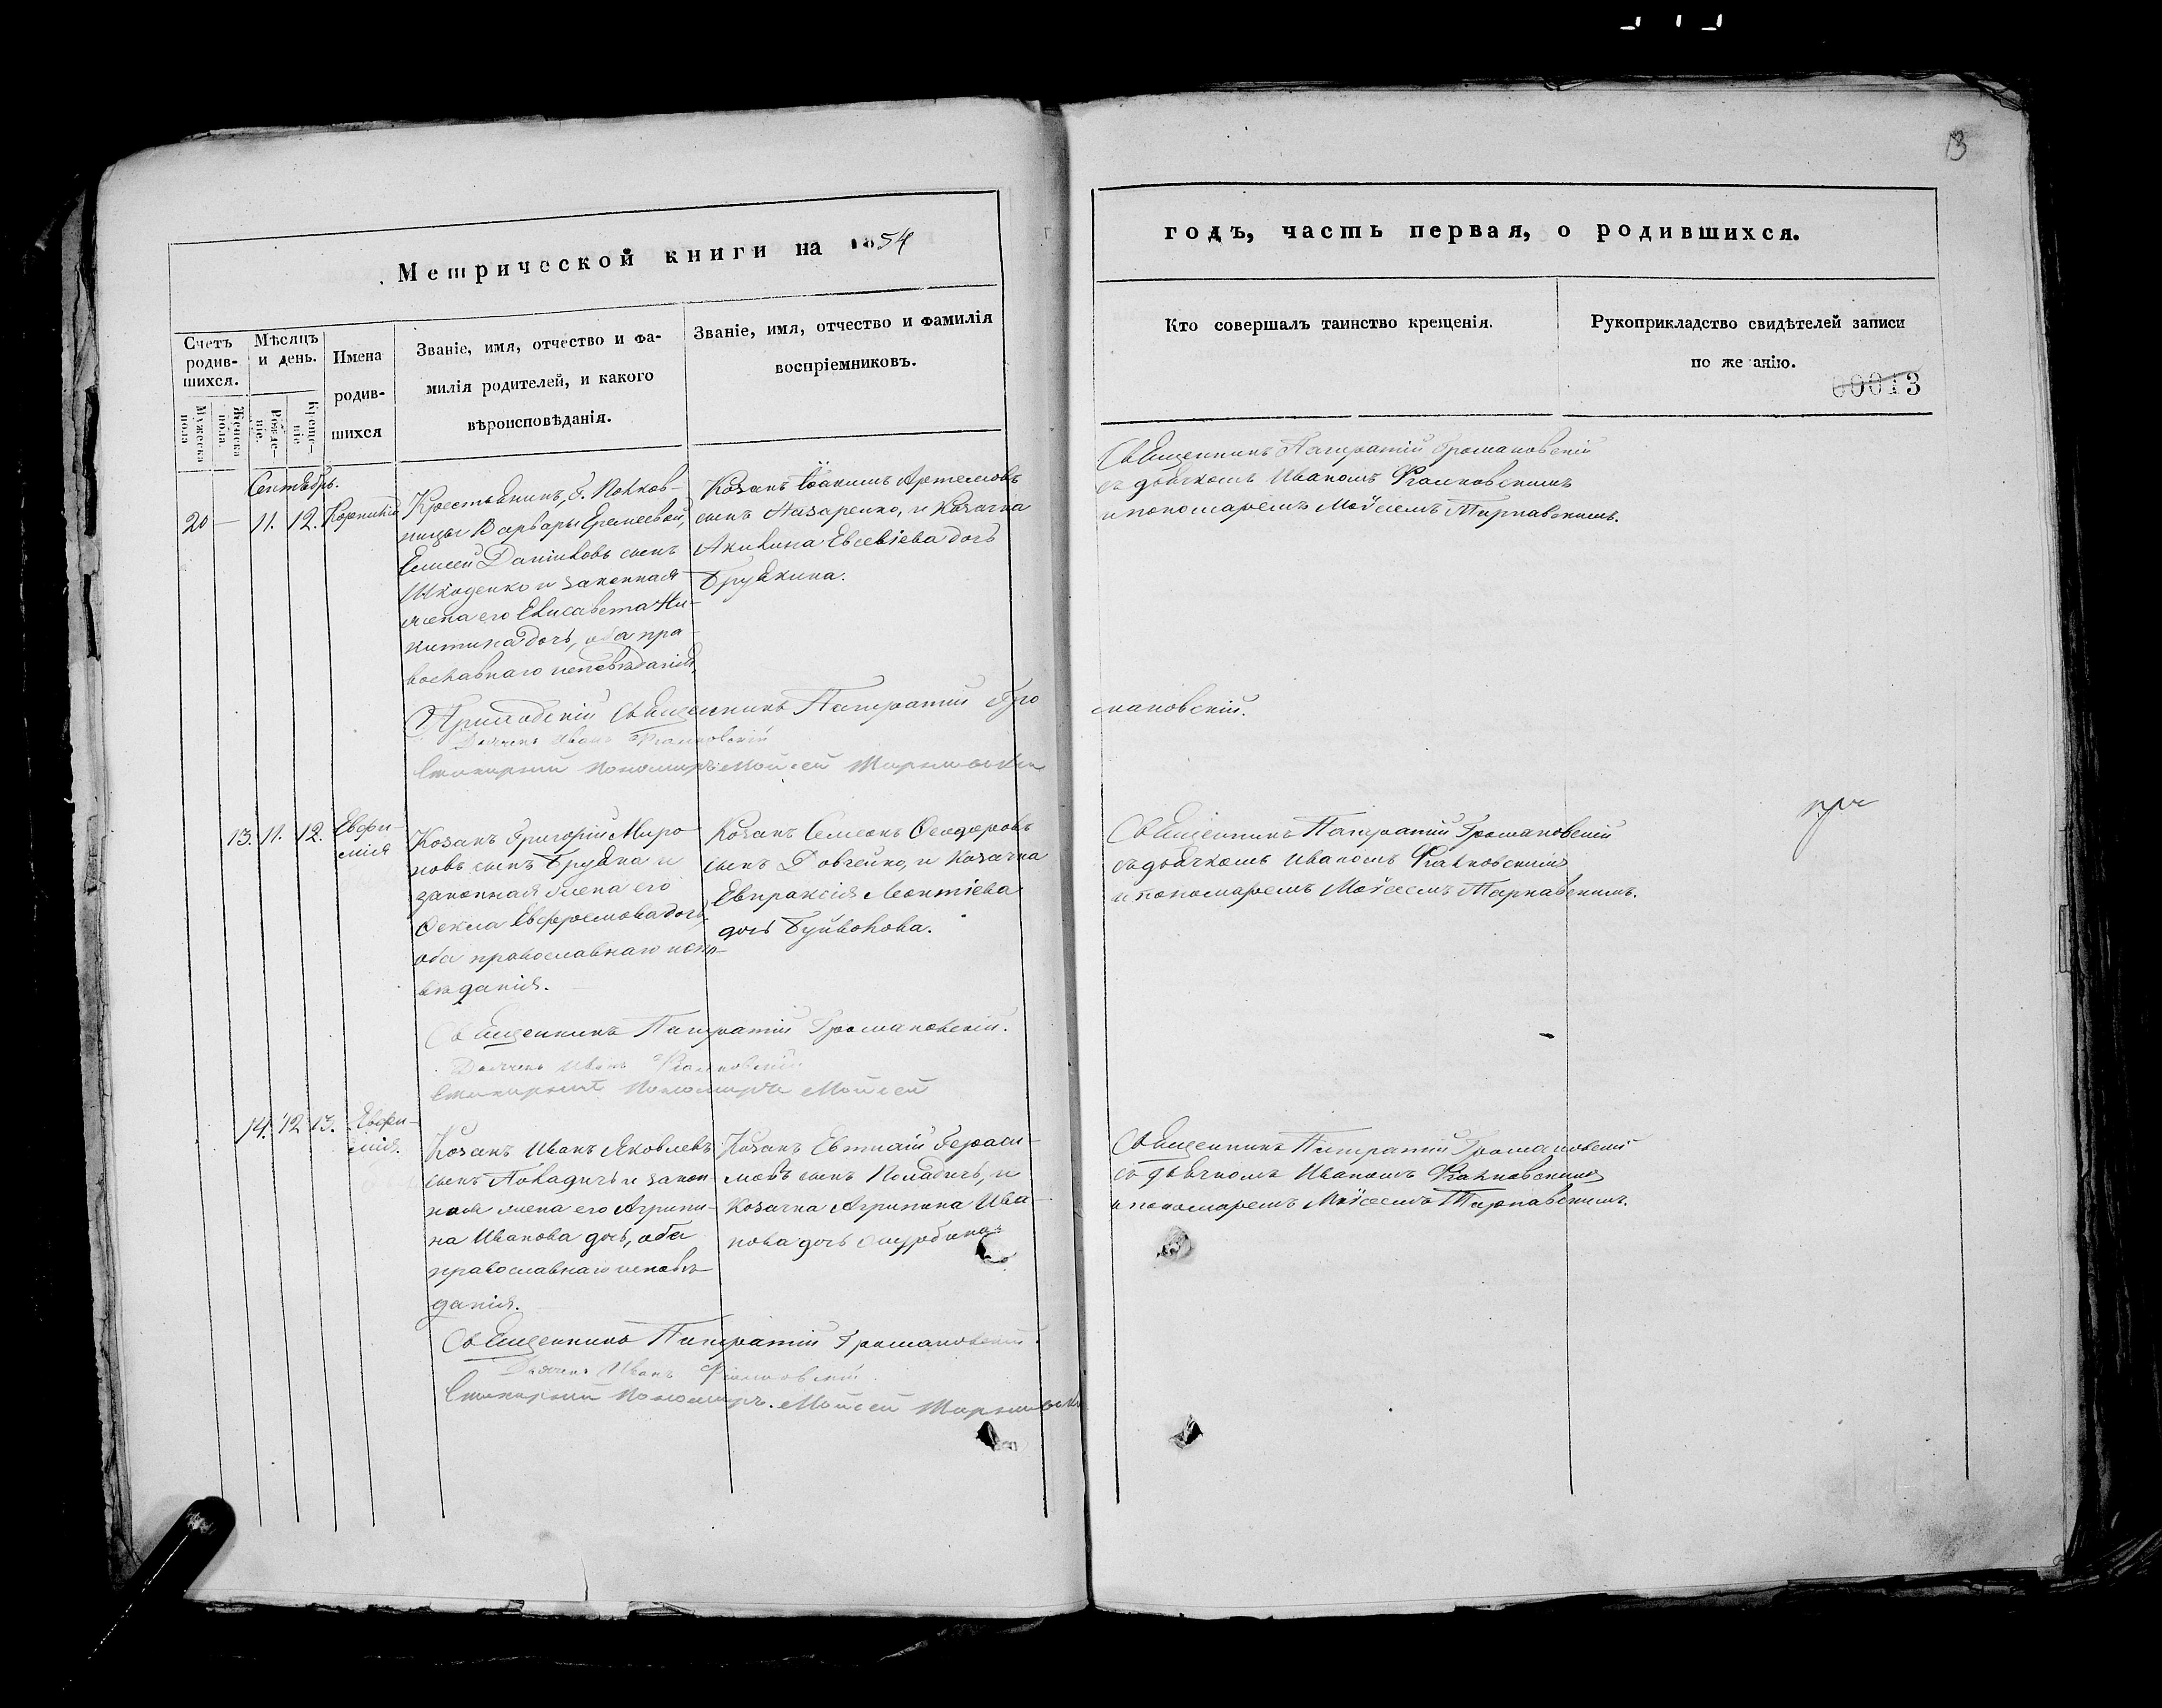 13
Метрической книги на 1854
годъ, часть первая, о родившихся.
Счетъ родив-шихся.
Мужеска пола
Женска пола.
Мѣсяцъ и день.
Рожде-ніе.
Креще-ніе
Имена
родив-
шихся
Званіе, имя, отчество и фа-
милія родителей, и какого
вѣроисповѣданія.
Званіе, имя, отчество и фамилія
воспріемниковъ.
Кто совершалъ таинство крещенія.
Рукоприкладство свидѣтелей записи
по же анію.
00013
Сентябрь.
20 — 11. 12. Корнилій
Крестьянинъ, Г. Полков-
ницы Варвары Еремеевой,
Елисей Даніиловъ сынъ
и законная
жена его Елисавета Ни-
китина дочь, оба пра-
вославнаго исповѣданія,
Козакъ Іоакимъ Артемовъ
сынъ Назаренко, и Козачка
Акилина Евсевіева дочь
Грушкина.
Священникъ Панкратій Громановскій
съ дьячкомъ Иваномъ
и пономаремъ Моисеемъ Тарнавскимъ.
Приходскій Священникъ Панкратій Гро
мановскій.
Дьячекъ Иванъ
Стихарный Пономарь Мойсей
13. 11. 12. Евфи-
мія
Козакъ Григорій Миро
новъ сынъ Грушка и
законная жена его
Ѳекла Евфремова дочь,
оба православнаго испо-
вѣданія.
Козакъ Симеонъ Ѳеодоровъ
сынъ Довгейко, и козачка
Евпраксія Леонтіева
дочь Буйволова.
Священникъ Панкратій Громановскій
съ дьячкомъ Иваномъ
и пономаремъ Моисеемъ Тарнавскимъ.
Священникъ Панкратій Громановскій.
Дьячекъ Иванъ
Стихарный Пономарь Мойсей
14. 12 13. Евфи-
мія.
Козакъ Иванъ Яковлевъ
сынъ Поладичъ и закон
ная жена его Агрипи-
на Иванова дочь, оба
православнаго исповѣ
данія.
Козакъ Евтихій Гераси-
мовъ сынъ Поладичъ, и
козачка Агрипина Ива-
нова дочь
Священникъ Панкратій Громановскій
съ дьячкомъ Иваномъ
и пономаремъ Моисеемъ Тарнавскимъ.
Священникъ Панкратій Громановскій.
Дьячекъ Иванъ
Стихарный Пономарь. Мойсей